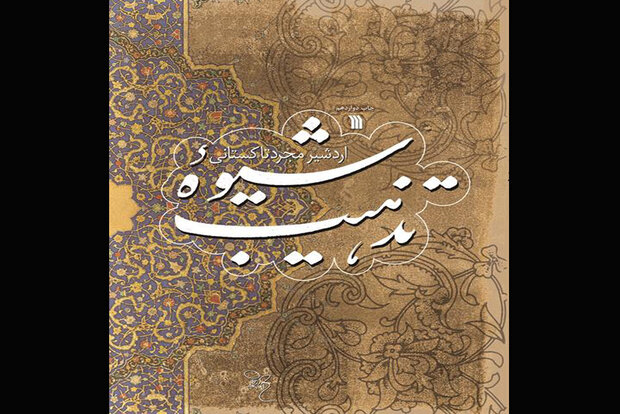 چاپ دوازدهم
اردشیر مجرد تاکستانی
شیوهٔ
تذهیب